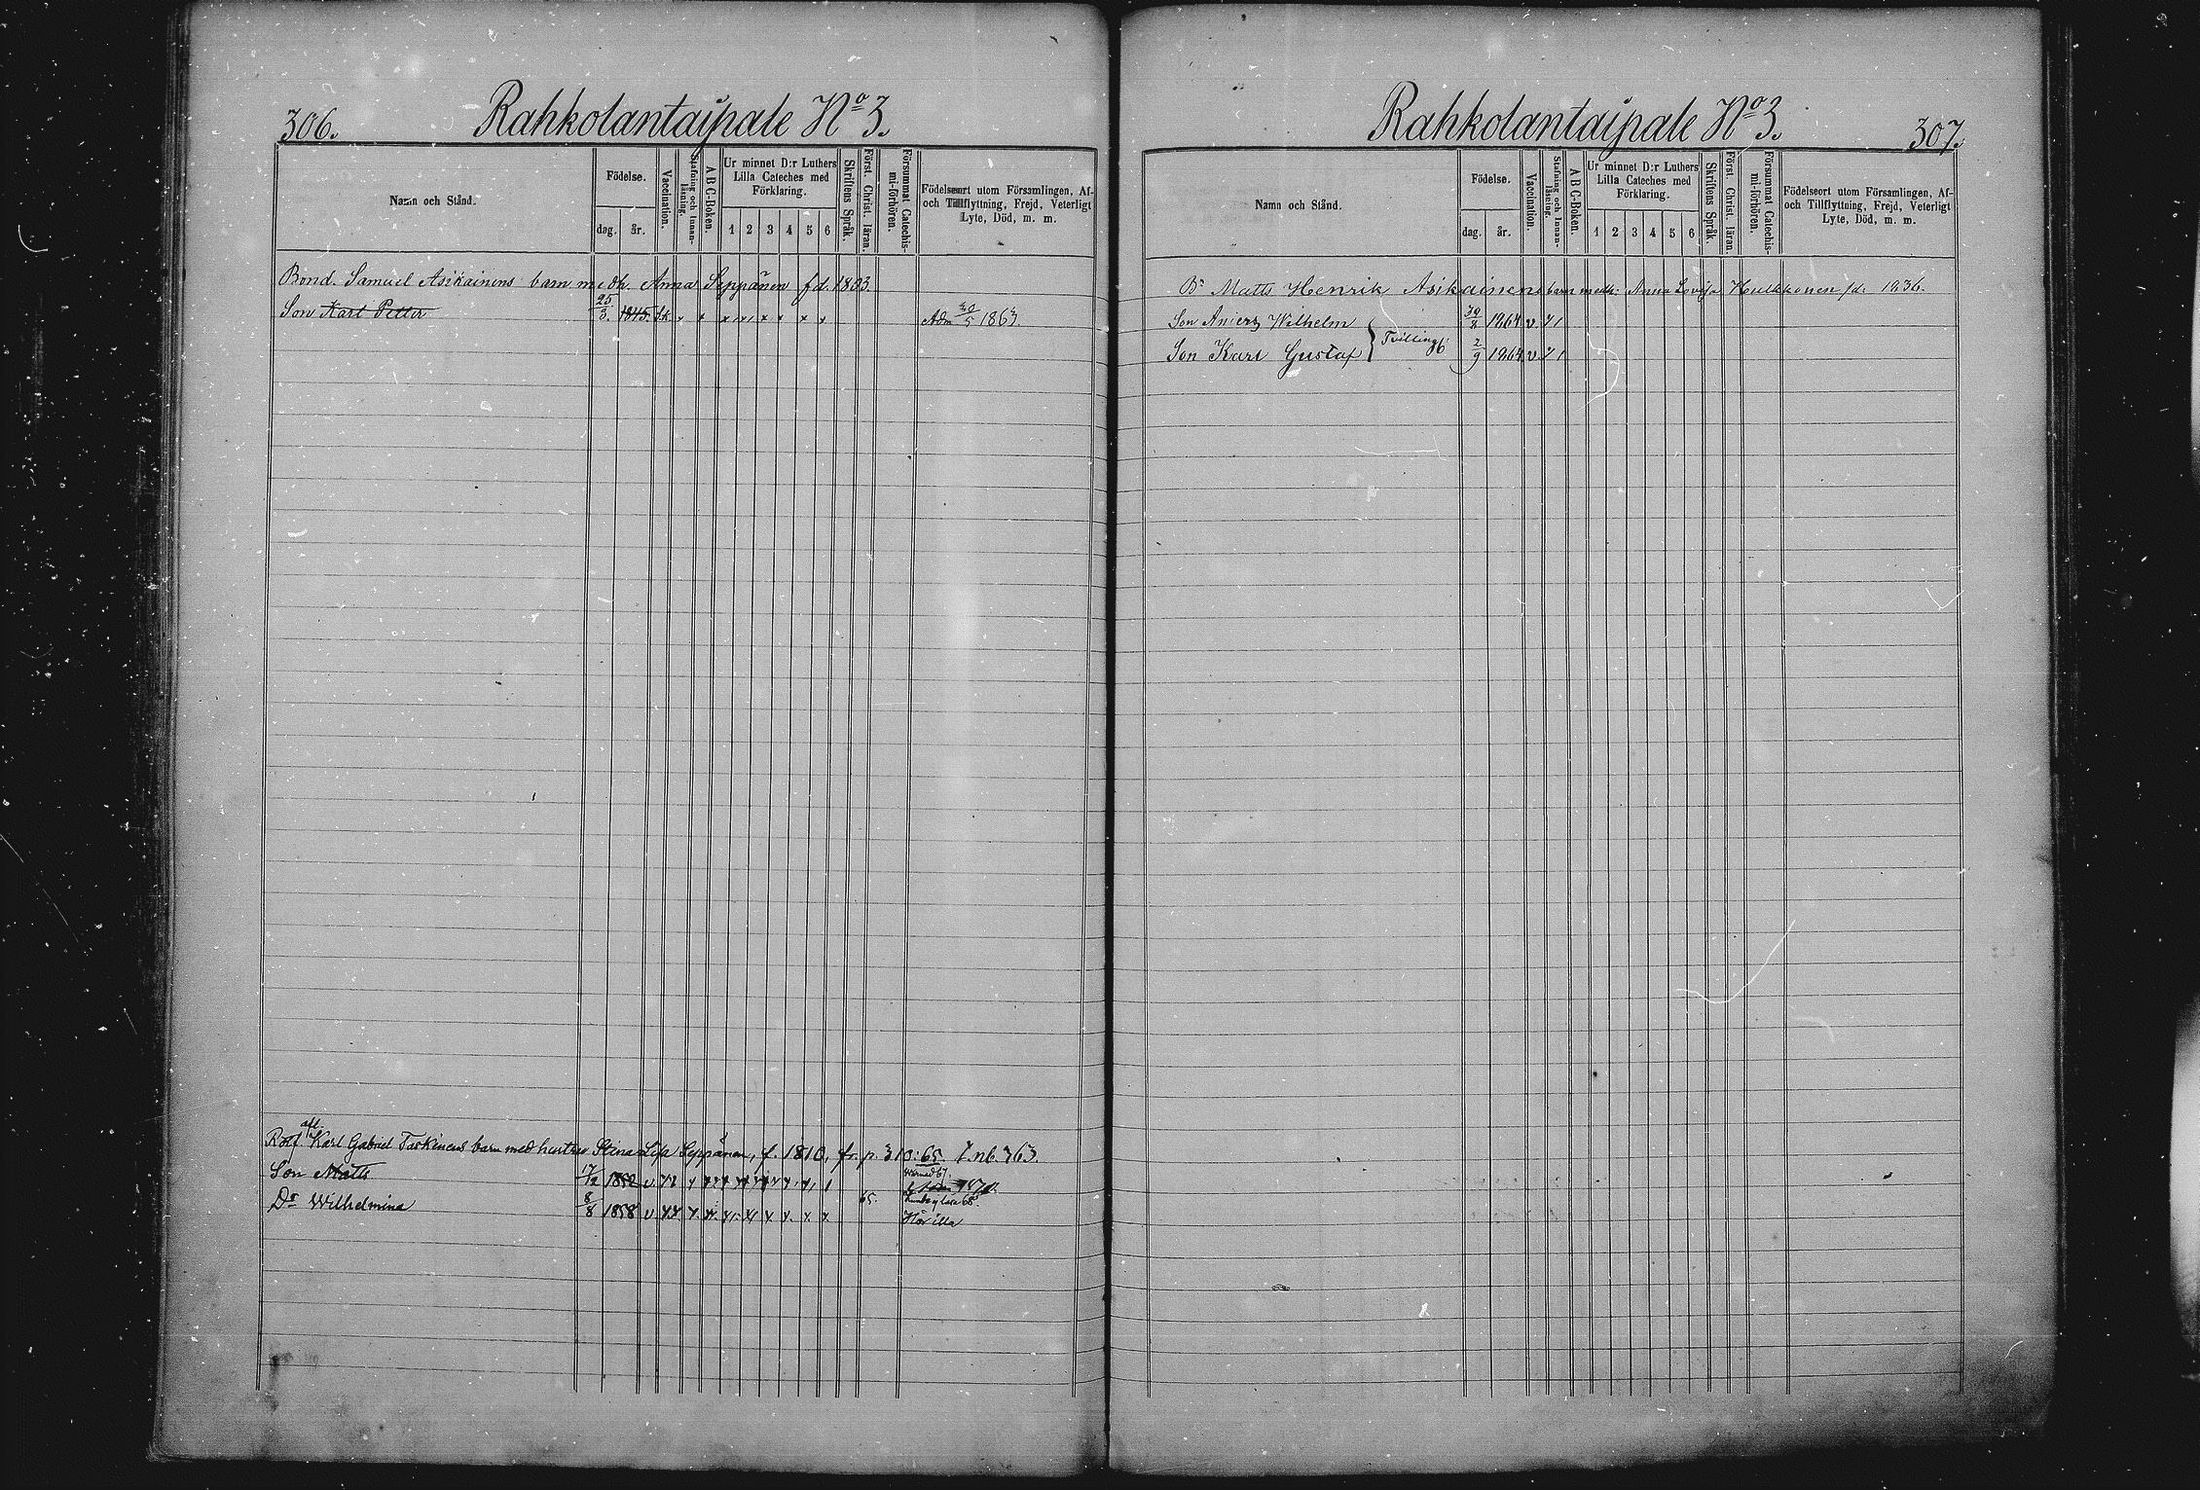 306.
Rahkolantaipale No 3.
Namn och Stånd.
Födelse.
dag.
år.
Vaccination.
Stafning och Innanläsning.
A B C-Boken.
Ur minnet D:r Luthers
Lilla Cateches med
Förklaring.
1 2 3 4 5 6
Skriftens Språk.
Först. Christ. läran.
Försummat Catechismi-förhören.
Födelseort utom Församlingen, Af-
och Tillflyttning, Frejd, Veterligt
Lyte, Död, m. m.
Bond. Samuel Asikainens barn medh. Anna Seppänen fd. 1803.
Son Karl Petter 25/3. 1845. Sk x x x x x x x x Adm 30/5 1863.
Karl Gabriel Taskinens barn med hustru Stina Lisa Seppänen, f. 1810, fr. p. 310: 65.
Son Matts 17/12 1852 v
Dr Wilhelmina 8/8 1858 v 65. Hör illa
Rahkolantaipale No 3.
307.
Namn och Stånd.
Födelse.
dag.
år.
Vaccination.
Stafning och Innanläsning.
A B C-Boken.
Ur minnet D:r Luthers
Lilla Cateches med
Förklaring.
1 2 3 4 5 6
Skriftens Språk.
Först. Christ. läran.
Försummat Catechismi-förhören.
Födelseort utom Församlingen, Af-
och Tillflyttning, Frejd, Veterligt
Lyte, Död, m. m.
Br Matts Henrik Asikainens barn medh: Anna Lovisa Hulkkonen fd: 1836.
Son Anders Wilhelm 1864 v.
Son Karl Gustaf } Tvilling 2/9 1864 v.